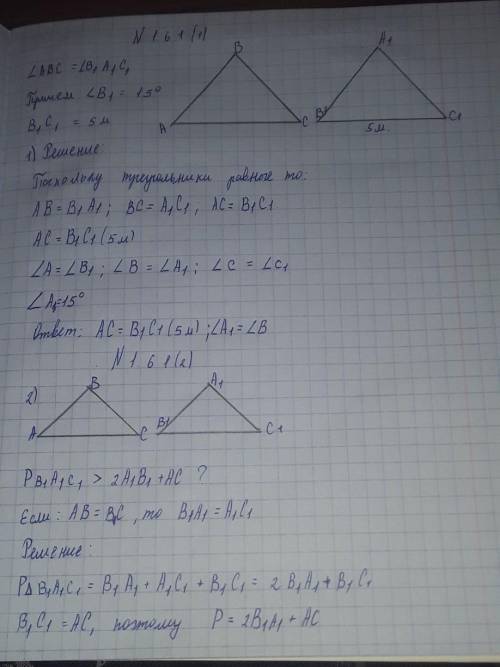 N 161(1)
∠ABC = ∠B1 A1 C1
Причем ∠B1 = 15°
B1C1 = 5м
B
A
C
A1
B1
C1
5м.
1) Решение:
Поскольку треугольники равные то:
AB = B1A1 ; BC = A1C1 , AC = B1C1
AC = B1C1 (5м)
∠A = ∠B1 ; ∠B = ∠A1 ; ∠C = ∠C1
∠A1=15°
Ответ: AC = B1C1 (5м) ; ∠A1 = ∠B
N 161(2)
2)
B
A
C
A1
B1
C1
P B1A1C1 > 2A1B1 + AC ?
Если : AB = BC , то B1A1 = A1C1
Решение:
P∆ B1A1C1 = B1A1 + A1C1 + B1C1 = 2 B1A1 + B1C1
B1C1 = AC, поэтому P = 2B1A1 + AC